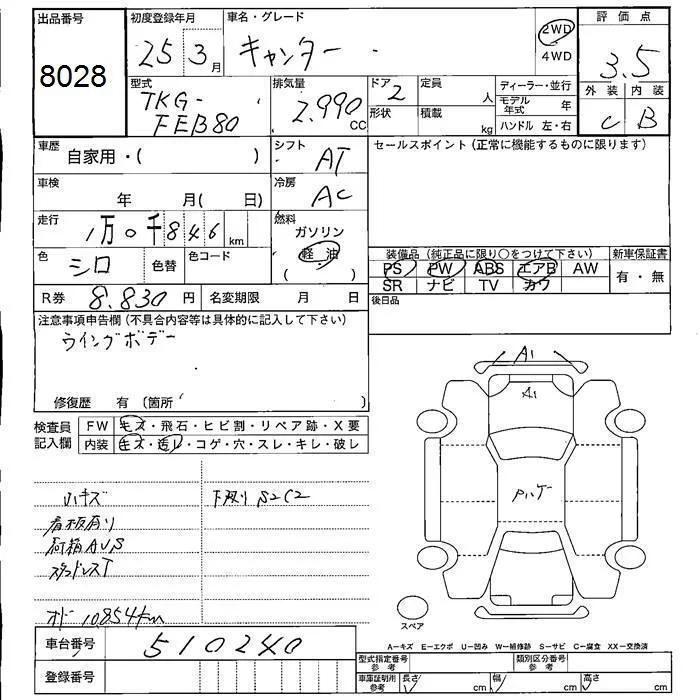 出品番号 初度登録年月 車名・グレード 2WD 4WD 評価点
8028 25 3月 キャンター 3.5
型式 排気量 ドア 定員 ディーラー・並行 外装 内装
TKG-FEB80 2.990 CC 2 人 モデル年式 年 C B
形状 積載 kg ハンドル 左・右
車歴 自家用・( ) シフト AT セールスポイント (正常に機能するものに限ります)
車検 年 月( 日) 冷房 AC
走行 1万0千846 km 燃料 ガソリン
軽油
( )
色 シロ 色替 色コード 装備品 (純正品に限り○をつけて下さい) 新車保証書
PS PW ABS エアB AW 有・無
SR ナビ TV カワ
R券 8.830円 名変期限 月 日 後日品
注意事項申告欄 (不具合内容等は具体的に記入して下さい)
ウイングボデー
修復歴 有 (箇所 )
検査員記入欄 FW キズ・飛石・ヒビ割・リペア跡・X要
内装 キズ・汚レ・コゲ・穴・スレ・キレ・破レ
A1
A1
小キズ 下廻り S2C2
看板有り
荷箱AUS
スタッドレスT
オド 10854km
スペア
A−キズ E−エクボ U−凹み W−補修跡 S−サビ C−腐食 XX−交換済
車台番号 510240
登録番号
型式指定番号参考 類別区分番号参考
車庫証明用参考 長さ cm 幅 cm 高さ cm